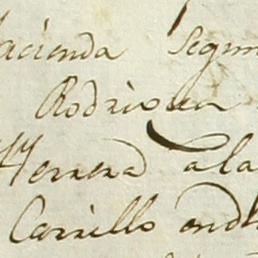 hacienda Segun
Rodriguez
Herrera a la
Carrillo ond